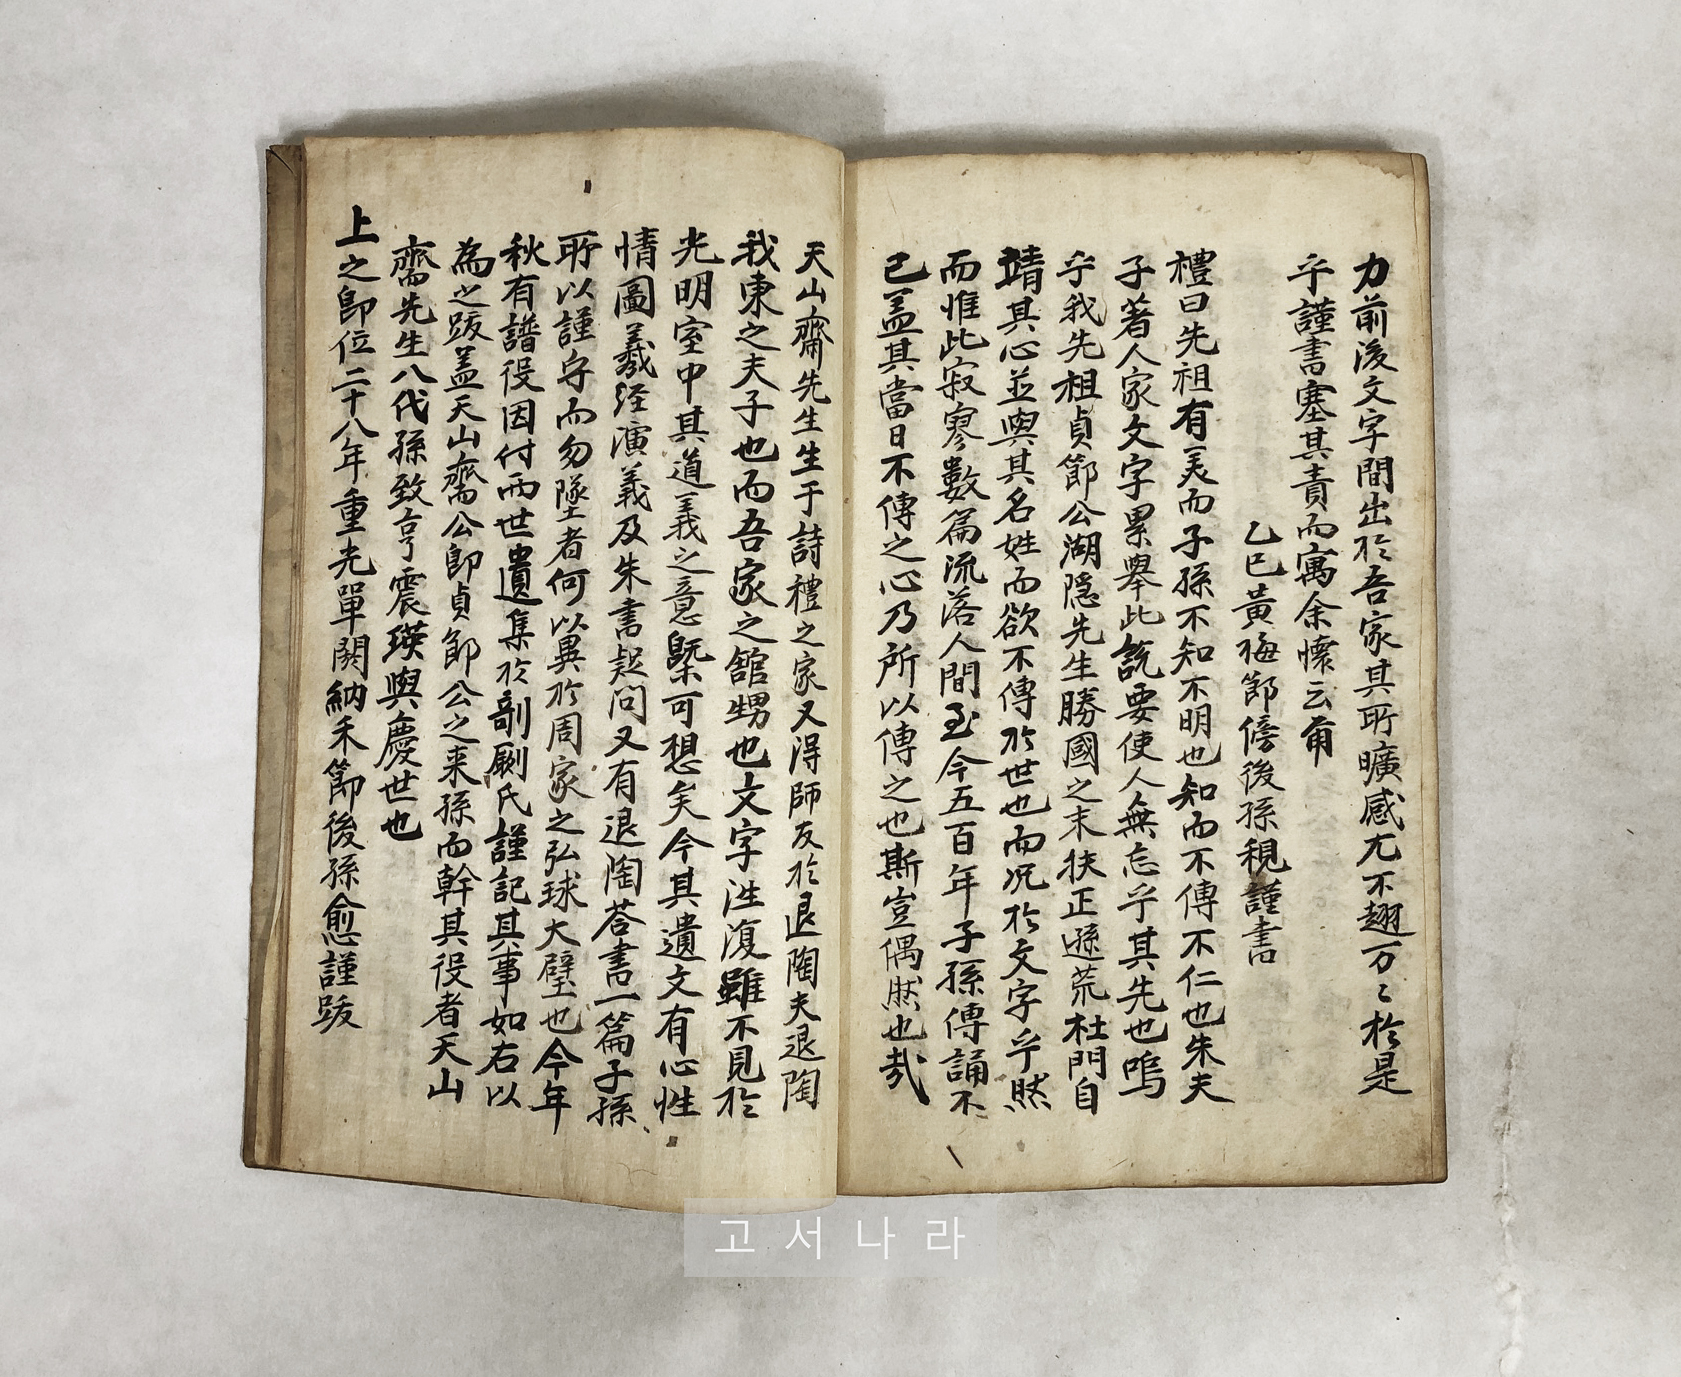 力前後文字間出於吾家其所曠感尤不趐万〻於是
乎謹書塞其責而寓余懷云爾
乙巳黃梅節傍後孫稷謹書
禮曰先祖有美而子孫不知不明也知而不傳不仁也朱夫
子著人家文字累擧此說要使人人無忘乎其先也嗚
乎我先祖貞節公湖隱先生勝國之末扶正遜荒杜門自
靖其心並與其名姓而欲不傳於世也而况於文字乎然
而惟此寂寥數篇流落人間至今五百年子孫傳誦不
已盖其當日不傳之心乃所以傳之也斯豈偶然也哉
天山齋先生生于詩禮之家又得師友於退陶夫退陶
我東之夫子也而吾家之舘甥也文字泩復雖不見於
光明室中其道義之意槩可想矣今其遺文有心性
情圖羲經演義及朱書疑問又有退陶荅書一篇子孫
所以謹守而勿墜者何以異於周家之弘球大璧也今年
秋有譜役因付兩世遺集於剞劂氏謹記其事如右以
為之跋盖天山齋公卽貞節公之来孫而幹其役者天山
齋先生八代孫致亨震瑛與慶世也
上之卽位二十八年重光單閼納禾節後孫愈謹跋
고서나라